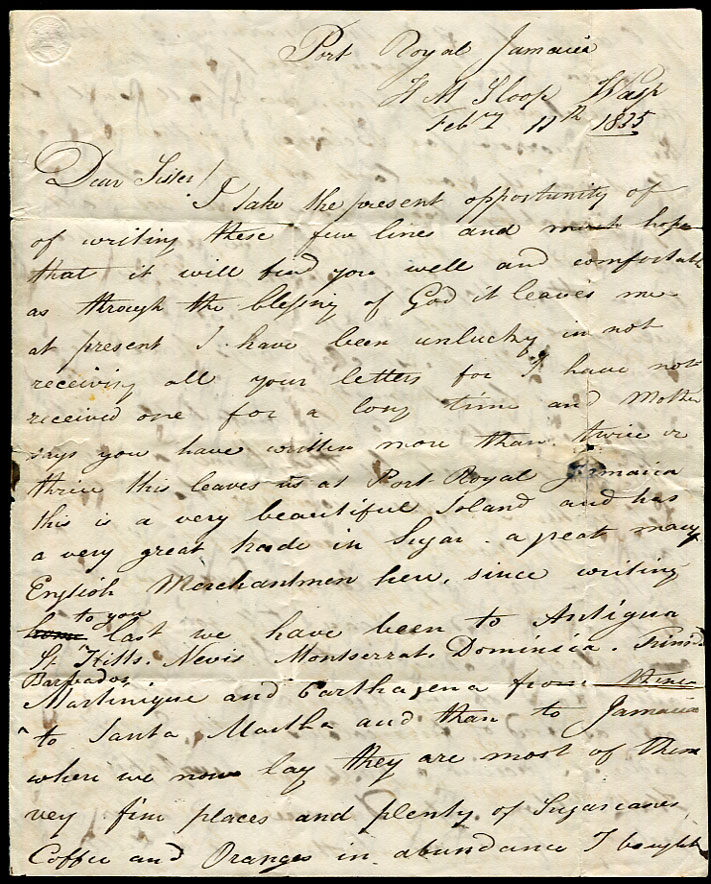 Port Royal Jamaica
H M Sloop Wasp
Feby 11th 1835
Dear Sister!
I take the present opportunity of
of writing these few lines and much hope
that it will find you well and comfortable
as through the blessing of God it leaves me
at present I have been unlucky in not
receiving all your letters for I have not
received one for a long time and Mother
says you have written more than twice or
thrice this leaves us at Port Royal Jamaica
this is a very beautiful Island and has
a very great trade in Sugar. a great many
English Merchantmen here, since writing
to you
home last we have been to Antigua
St Kitts. Nevis Montserrat. Dominica. Trinid
Barbados
Martinique and Carthagena from thence
to Santa Martha and than to Jamaica
where we now lay they are most of them
very fine places and plenty of Sugarcanes,
Coffee and Oranges in abundance I bought